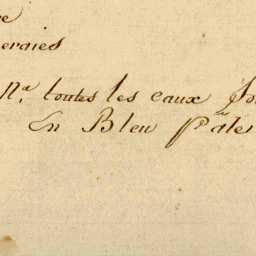 re
eraies
N.ª toutes les eaux
En Bleu Pâle